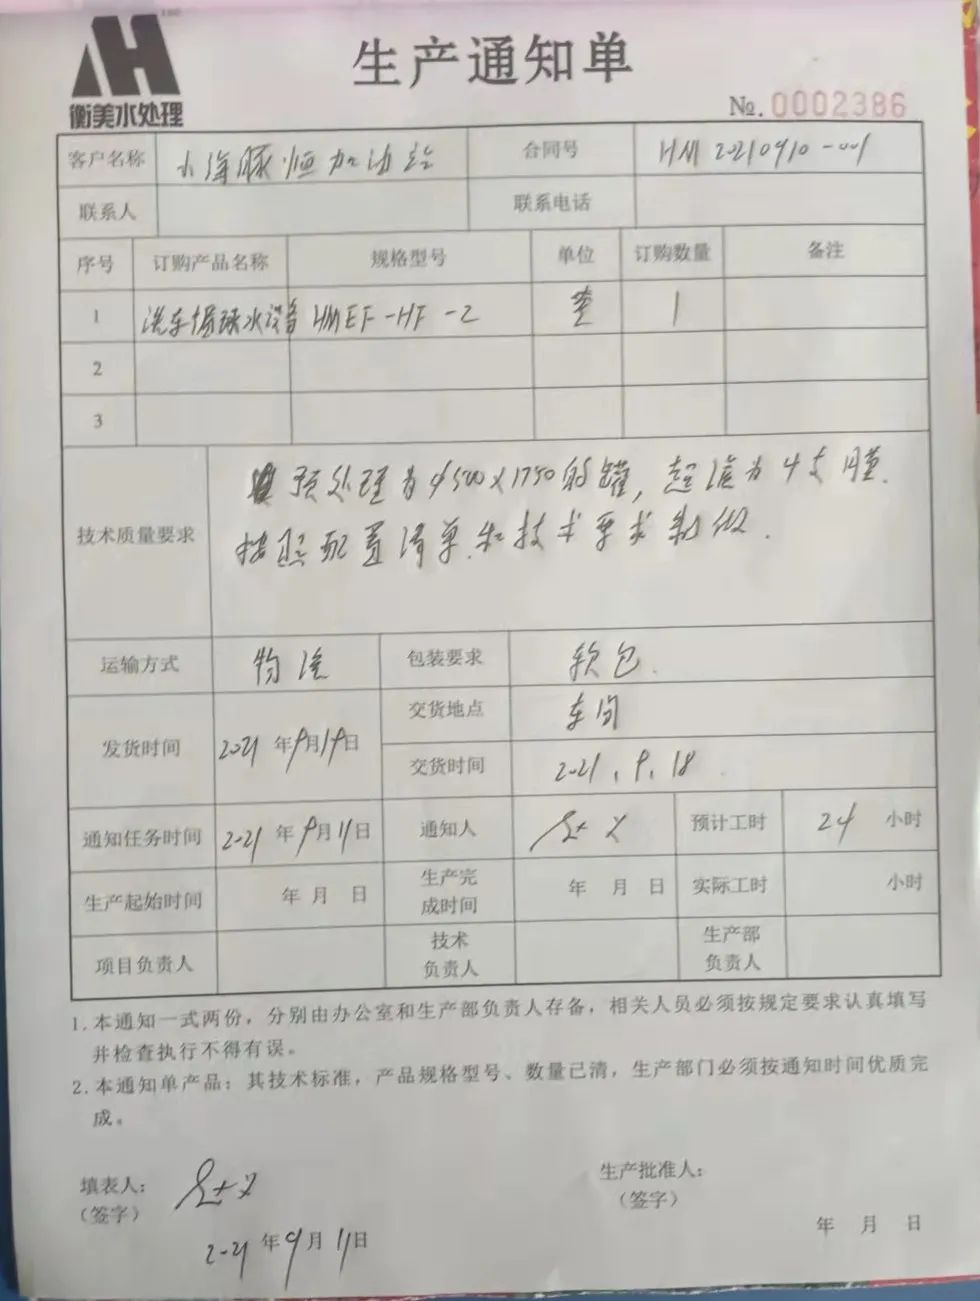 衡美水处理
生产通知单
№.0002386
客户名称 小海豚恒加油站 合同号 HM 20210910-001
联系人 联系电话
序号 订购产品名称 规格型号 单位 订购数量 备注
1 洗车循环水设备 HMEF-HF-2 套 1
2
3
技术质量要求 预处理为φ500×1750的罐，超滤为4支膜.
按照配置清单和技术要求制做.
运输方式 物流 包装要求 软包.
发货时间 2021年9月19日 交货地点 车间
交货时间 2021.9.18
通知任务时间 2021年9月11日 通知人 预计工时 24 小时
生产起始时间 年 月 日 生产完成时间 年 月 日 实际工时 小时
项目负责人 技术负责人 生产部负责人
1.本通知一式两份，分别由办公室和生产部负责人存备，相关人员必须按规定要求认真填写
并检查执行不得有误。
2.本通知单产品：其技术标准，产品规格型号、数量已清，生产部门必须按通知时间优质完
成。
填表人： 生产批准人：
（签字） （签字）
2021年9月11日 年 月 日